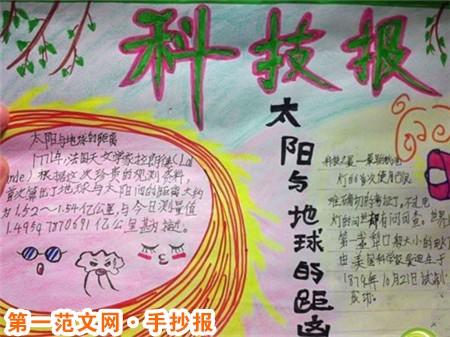 科技报
太阳与地球的距离
太阳与地球的距离
1771年，法国天文学家拉
nde）根据这次珍贵的观测资料，
首次算出了地球与太阳间的距离大约
为1.52～1.54亿公里，与今日测量值
1.4959787069亿公里
灯的首次使用已很
难确切的考证了，不过电
灯的问世却有问可查。世界上
第一盏
由美国科学家爱迪生于
1879年10月21日试
成功。
第一范文网·手抄报